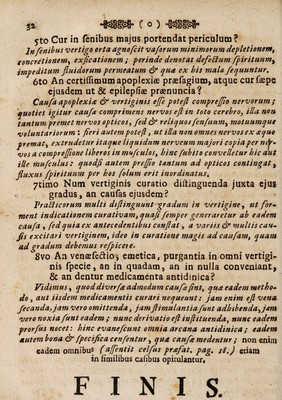 32 ( o )
5to Cur in senibus majus portendat periculum?
In senibus vertigo orta agnoscit vasorum minimorum depletionem,
concretionem, exsiccationem; perinde denotas defectum spirituum,
impeditum fluidorum permeatum & quæ ex his mala sequuntur.
6to An certissimum apoplexiæ præsagium, atque cur sæpe
ejusdem ut & epilepsiæ prænuncia?
Causa apoplexiæ & vertiginis esse potest compressio nervorum;
quoties igitur causa comprimens nervos est in toto cerebro, illa non
tantum premet nervos opticos, sed & reliquos sensuum, motuumque
voluntariorum: fieri autem potest, ut illa non omnes nervos ex æquo
premat, extrudetur itaque liquidum nerveum majori copia per ner-
vos a compressione liberos in musculos, hinc subito convelletur hic aut
ille musculus: quodsi autem pressio tantum ad opticos contingat,
fluxus spirituum per hos solum erit inordinatus.
7timo Num vertiginis curatio distinguenda juxta ejus
gradus, an causas ejusdem?
Practicorum multi distinguunt gradum in vertigine, ut for-
ment indicationem curativam, quasi semper generaretur ab eadem
causa, sed quia ex antecedentibus constat, a variis & multis cau-
sis excitari vertiginem, ideo in curatione magis ad causam, quam
ad gradum debemus respicere.
8vo An venæsectio, emetica, purgantia in omni vertigi-
nis specie, an in quadam, an in nulla conveniant,
& an dentur medicamenta antidinica?
Vidimus, quod diversæ admodum causæ sint, quæ eadem metho-
do, aut iisdem medicamentis curari nequeunt: jam enim est vena
secanda, jam vero omittenda, jam stimulantia sunt adhibenda, jam
vero noxia sunt eadem; nunc derivatio est instituenda, nunc eadem
prorsus nocet: hinc evanescunt omnia arcana antidinica; eadem
autem bona & specifica censentur, quæ causæ medentur; non enim
eadem omnibus (assentit celsus præfat. pag. 18.) etiam
in similibus casibus opitulantur.
FINIS.